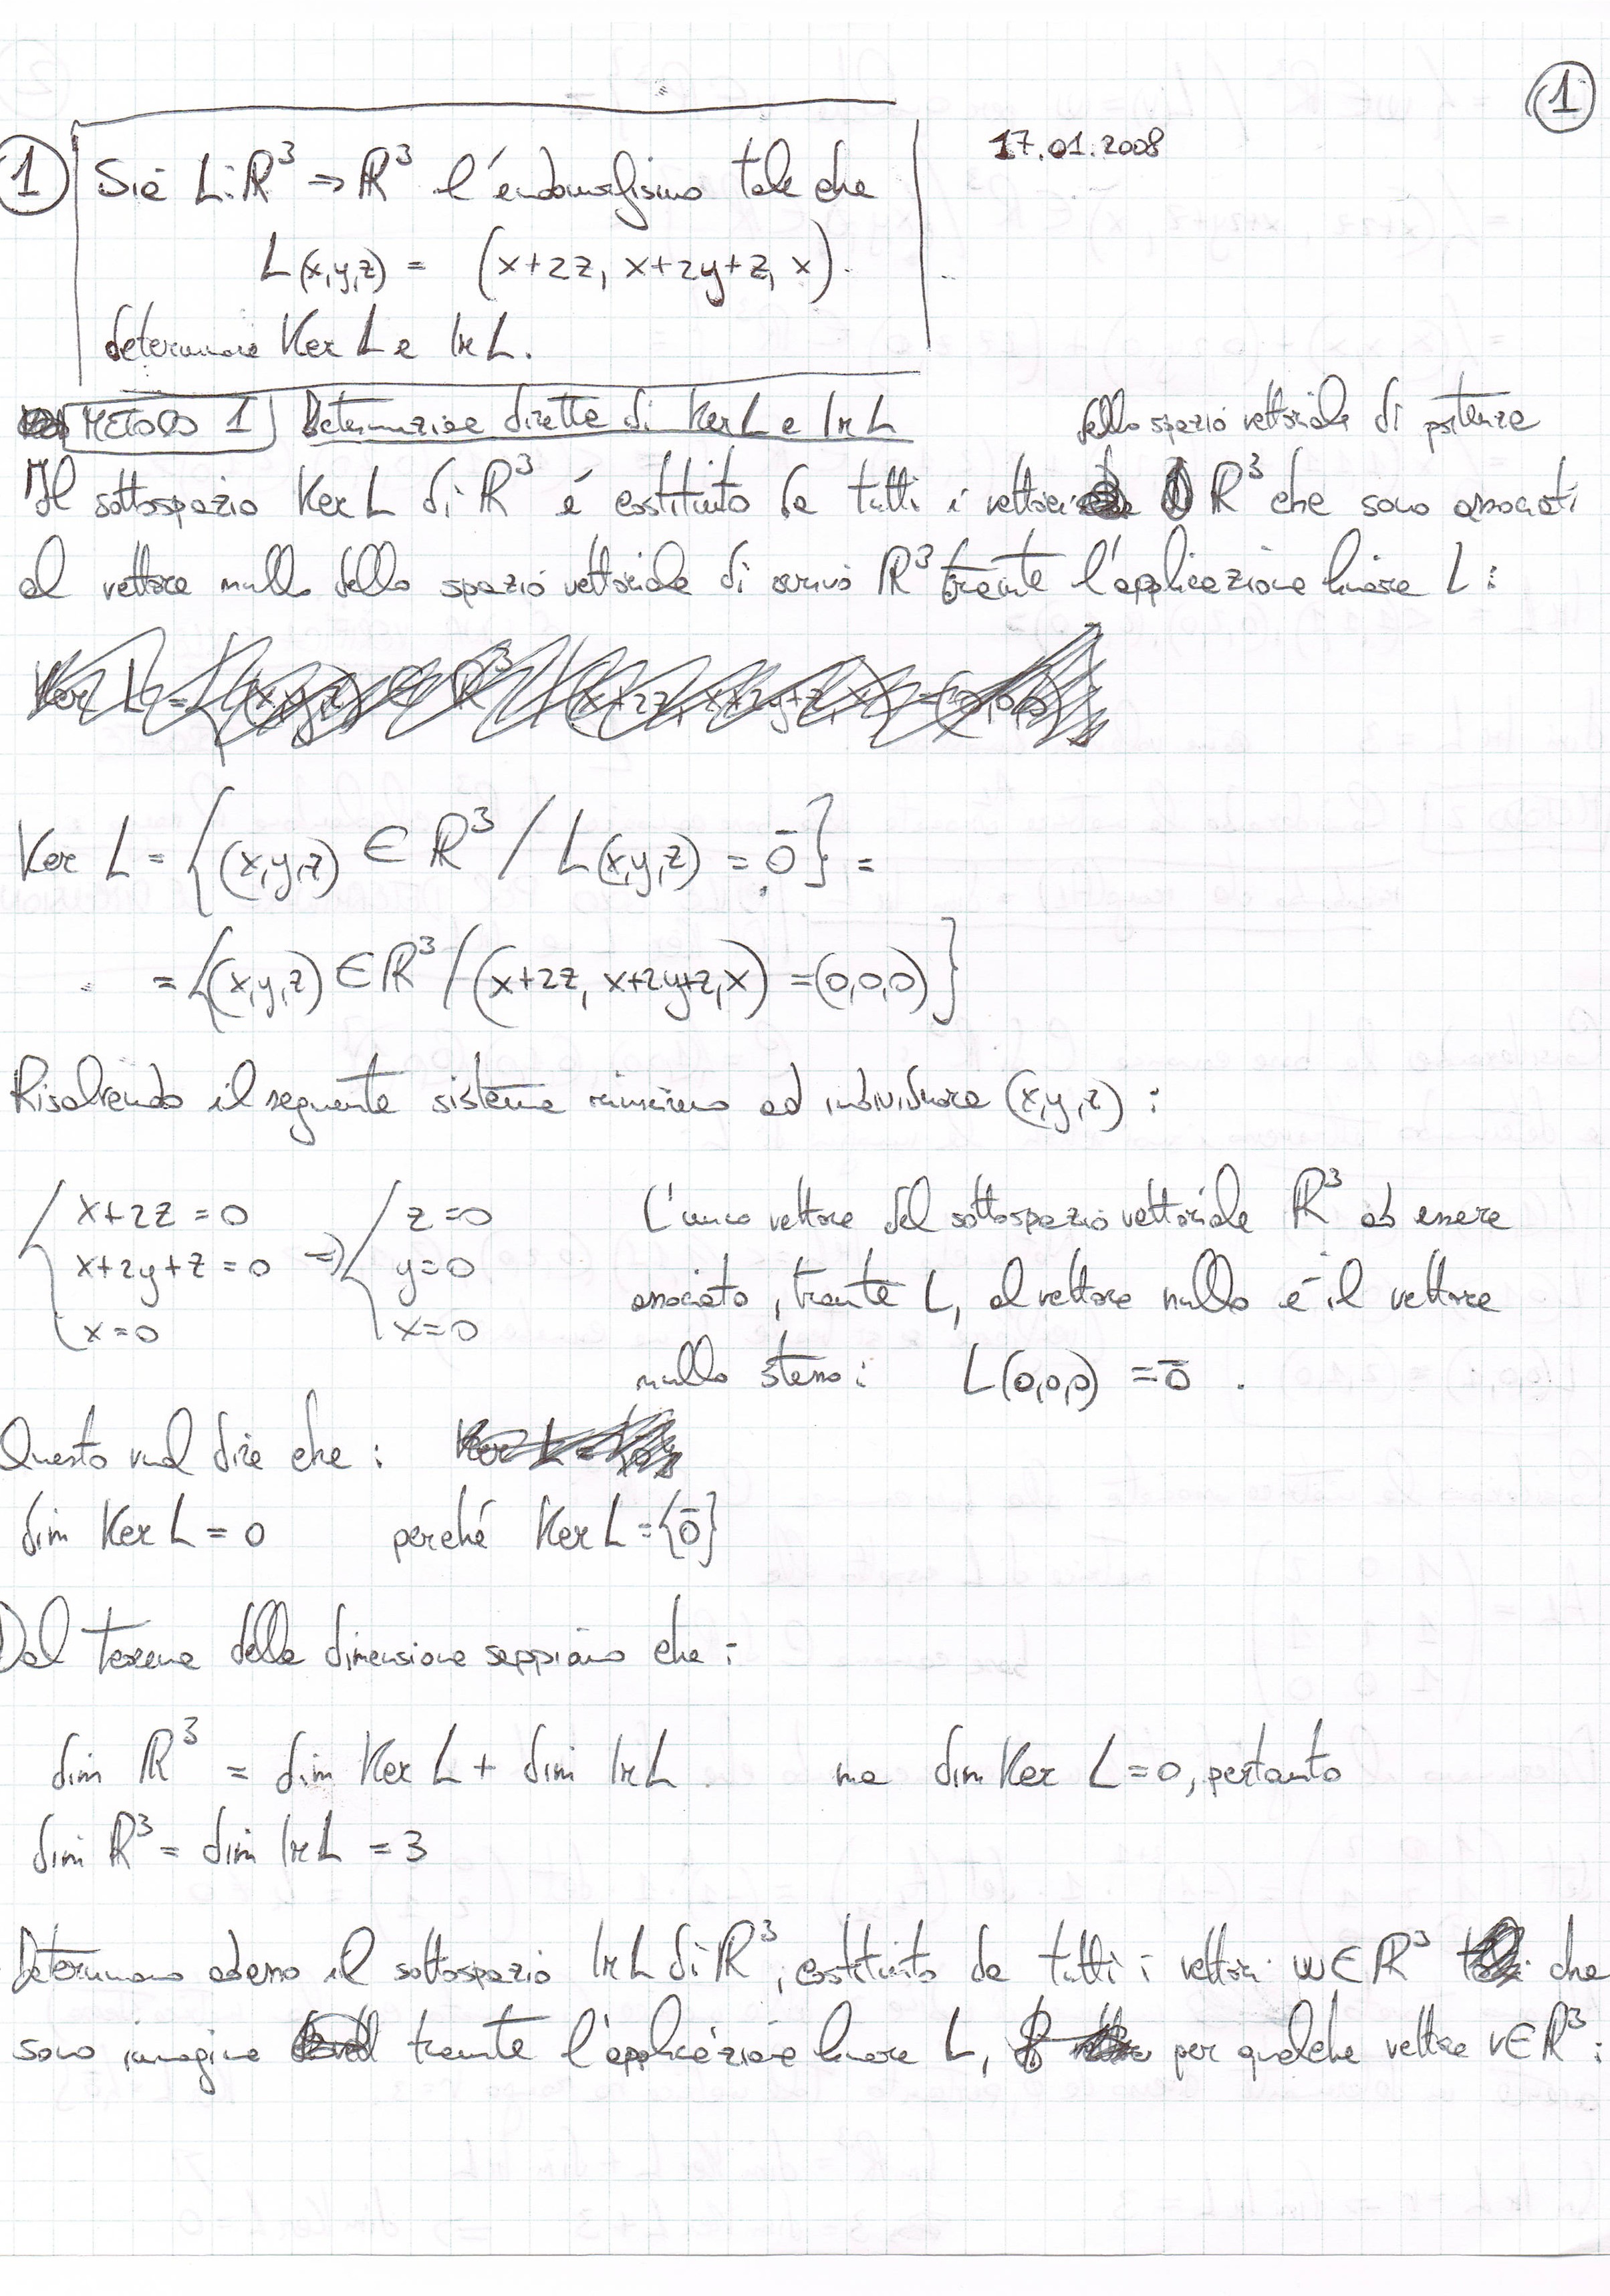 1
17.01.2008
1 Sia L: ℝ³ ⇒ ℝ³ l'endomorfismo tale che
L(x,y,z) = (x+2z, x+2y+z, x).
determinare Ker L e Im L.
METODO 1 Determinazione diretta di Ker L e Im L
dello spazio vettoriale di partenza
Il sottospazio Ker L di ℝ³ é costituito da tutti i vettori ℝ³ che sono associati
al vettore nullo dello spazio vettoriale di arrivo ℝ³ tramite l'applicazione lineare L:
Ker L = {(x,y,z) ∈ ℝ³ / L(x,y,z) = 0̄} =
= {(x,y,z) ∈ ℝ³ / (x+2z, x+2y+z, x) = (0,0,0)}
Risolvendo il seguente sistema riusciamo ad individuare (x,y,z):
{ x+2z = 0 ⇒ { z=0
x+2y+z = 0 y=0
x=0 x=0
L'unico vettore del sottospazio vettoriale ℝ³ ad essere
associato, tramite L, al vettore nullo é il vettore
nullo stesso: L(0,0,0) = 0̄ .
Questo vuol dire che:
dim Ker L = 0 perché Ker L = {0̄}
Dal teorema della dimensione sappiamo che:
dim ℝ³ = dim Ker L + dim Im L ma dim Ker L = 0, pertanto
dim ℝ³ = dim Im L = 3
Determiniamo adesso il sottospazio Im L di ℝ³, costituito da tutti i vettori w ∈ ℝ³ che
sono immagine tramite l'applicazione lineare L, per qualche vettore v ∈ ℝ³: